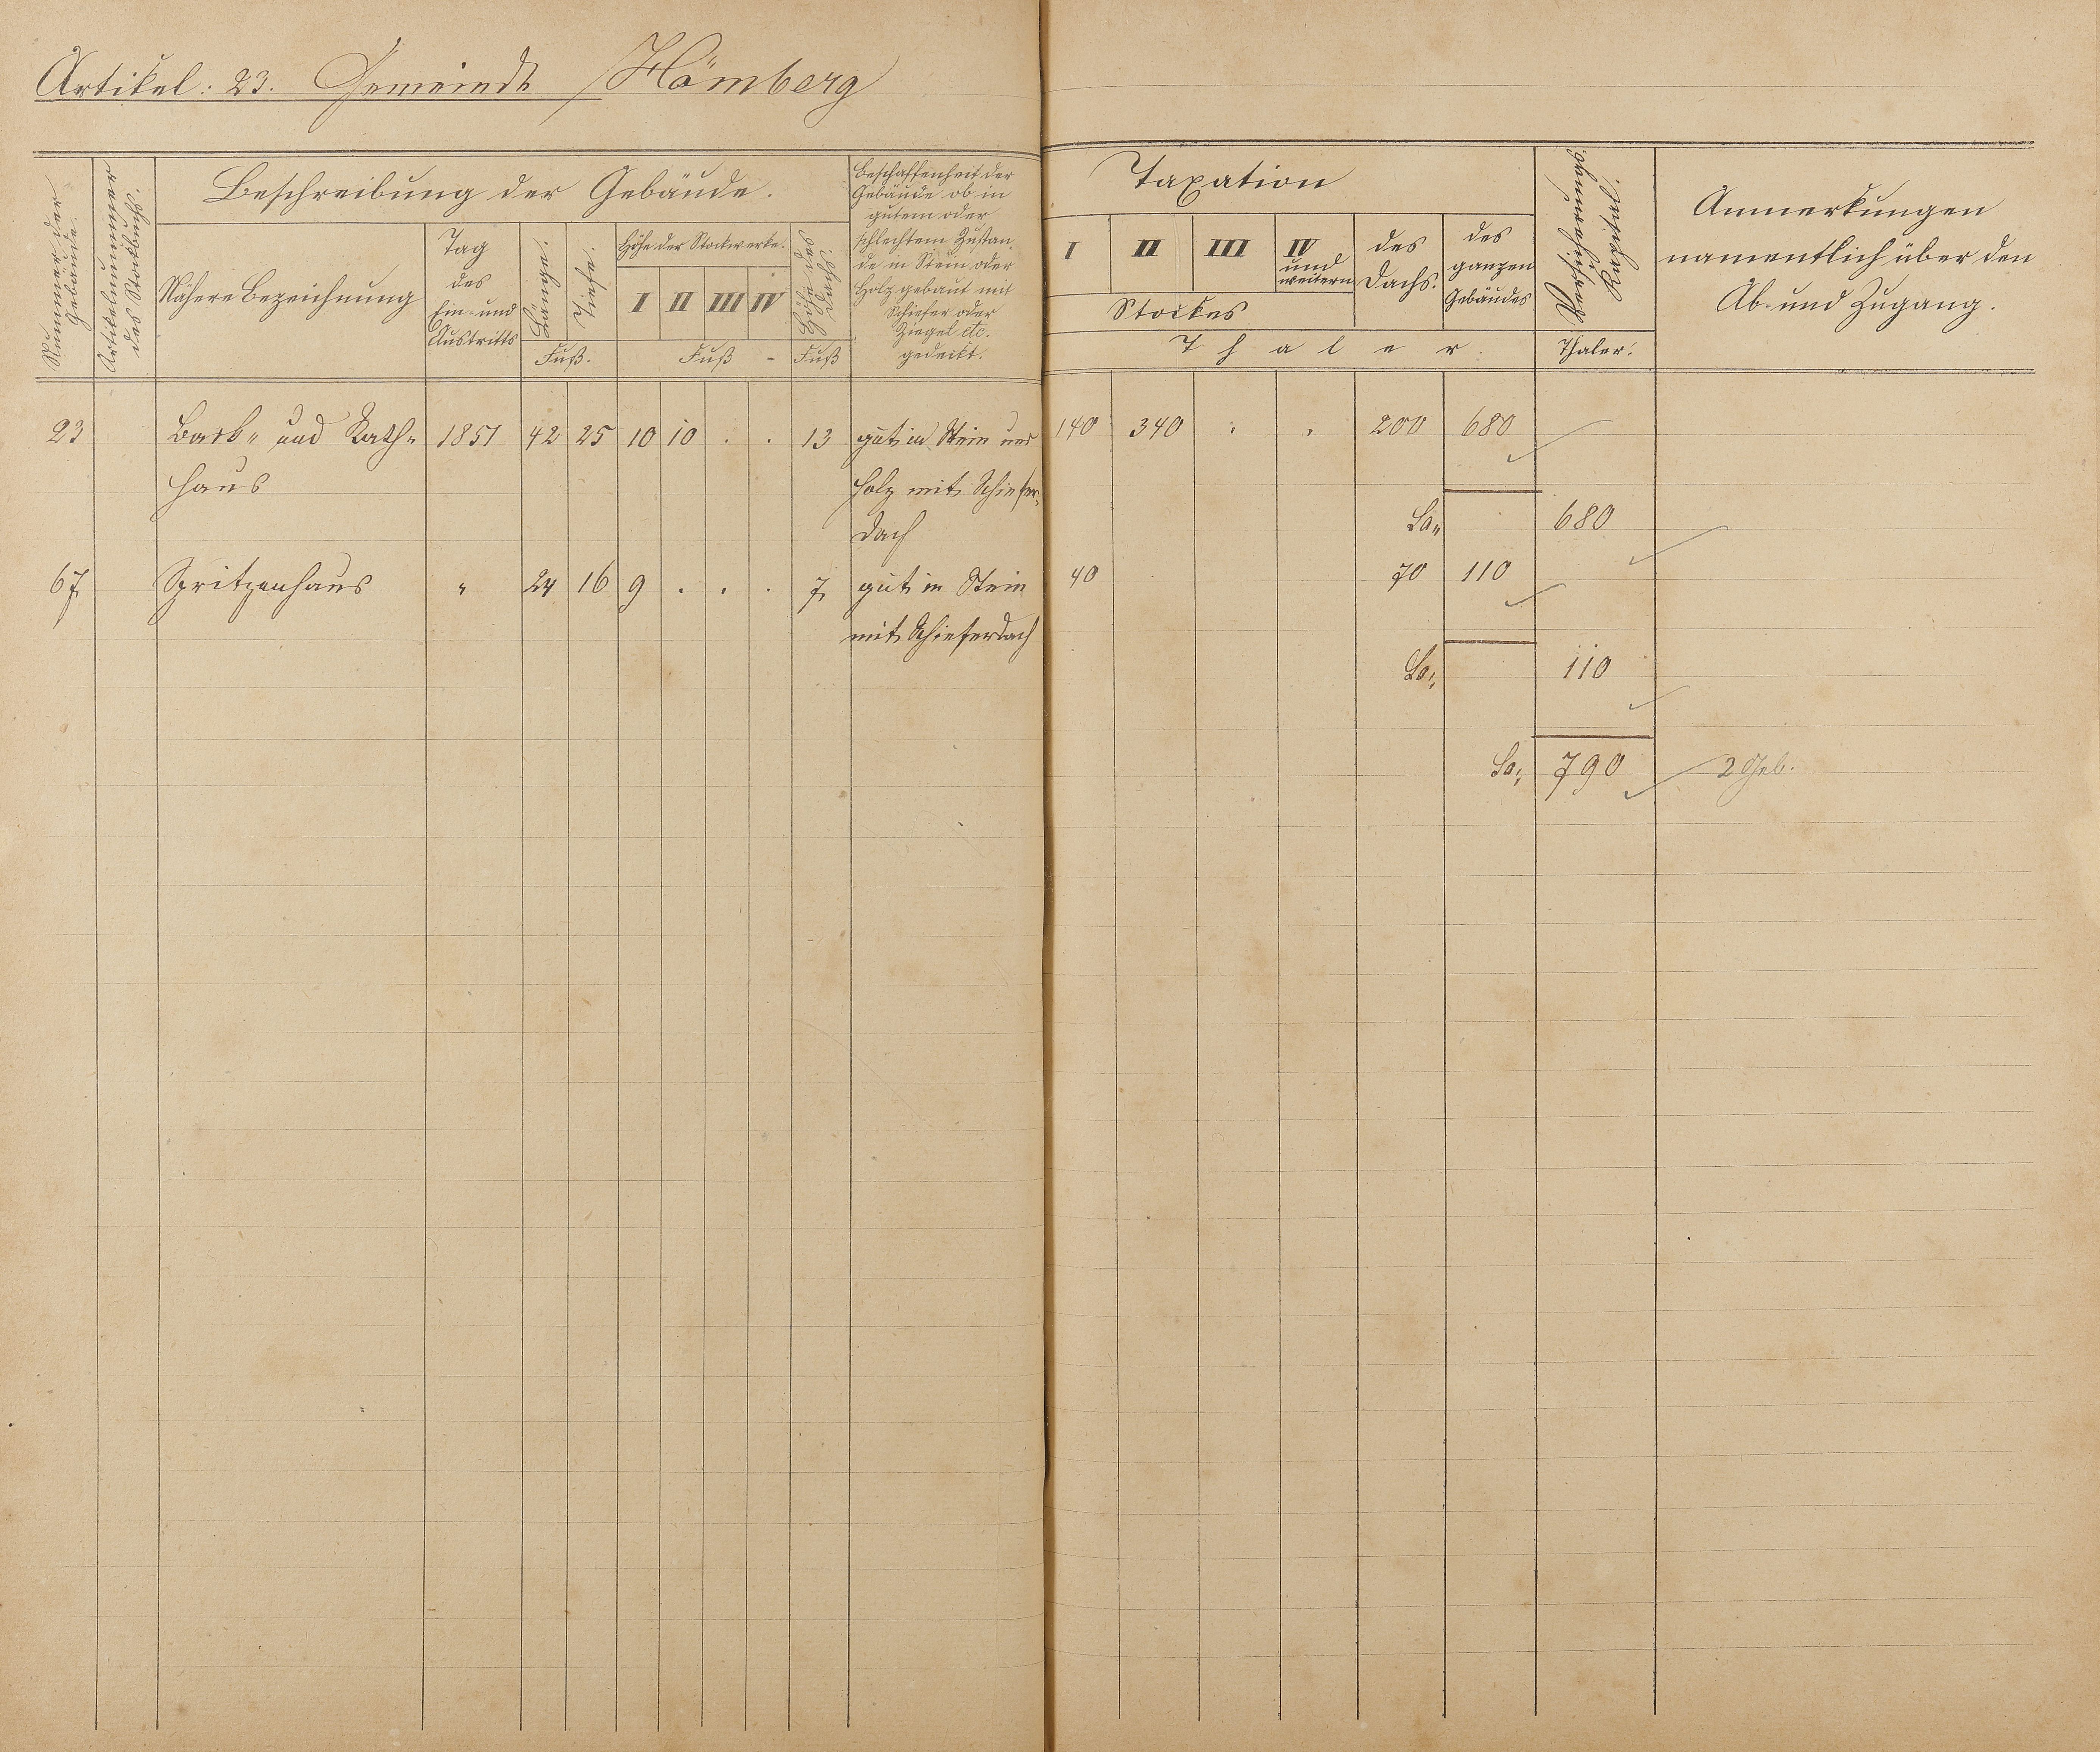 Artikel: 23. Gemeinde Hömberg
Nummer der Gebäude.
Artikelnummer des Stockbuchs.
Beschreibung der Gebäude.
Nähere Bezeichnung
Tag
des
Ein- und
Austritts
Laenge.
Tiefe.
Fuß.
Höhe der Stockwerke.
I II III IV
Fuß -
Höhe des Dachs.
Fuß
Beschaffenheit der
Gebäude ob in
gutem oder
schlechtem Zustan-
de in Stein oder
Holz gebaut mit
Schiefer oder
Ziegel etc.
gedeckt.
Taxation
I II III IV
und
weitern
Stockes
des
Dachs.
des
ganzen
Gebäudes
Thaler.
Versicherungs Capital.
Thaler.
Anmerkungen
namentlich über den
Ab- und Zugang.
23 Back- und Rath- 1851 42 25 10 10 . . 13 gut in Stein und 140 340 . . 200 680
haus Holz mit Schiefer-
Sa„ 680
dach
67 Spritzenhaus " 24 16 9 . . . 7 gut in Stein 40 70 110
mit Schieferdach
Sa„ 110
Sa„ 790 2 Geb.